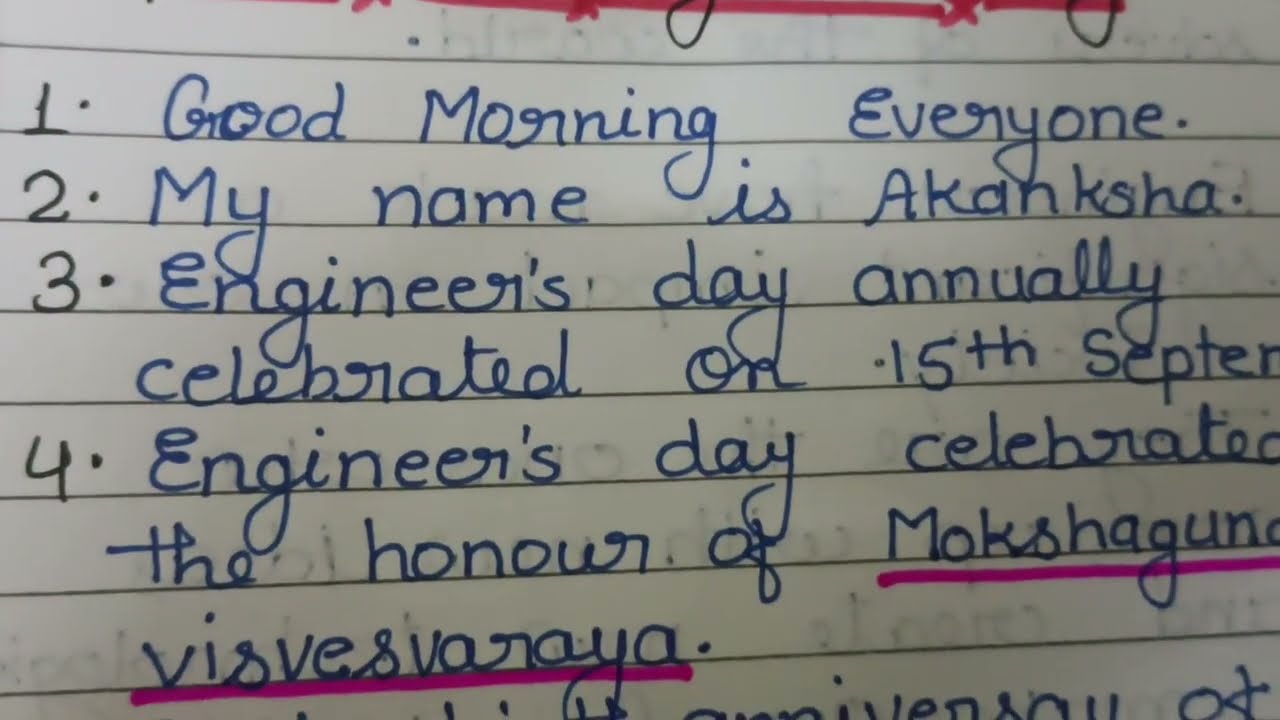 1. Good Morning Everyone.
2. My name is Akanksha.
3. Engineer's day annually
celebrated on 15th Septem
4. Engineer's day celebrated
the honour of Mokshagund
visvesvaraya.
anniversay of